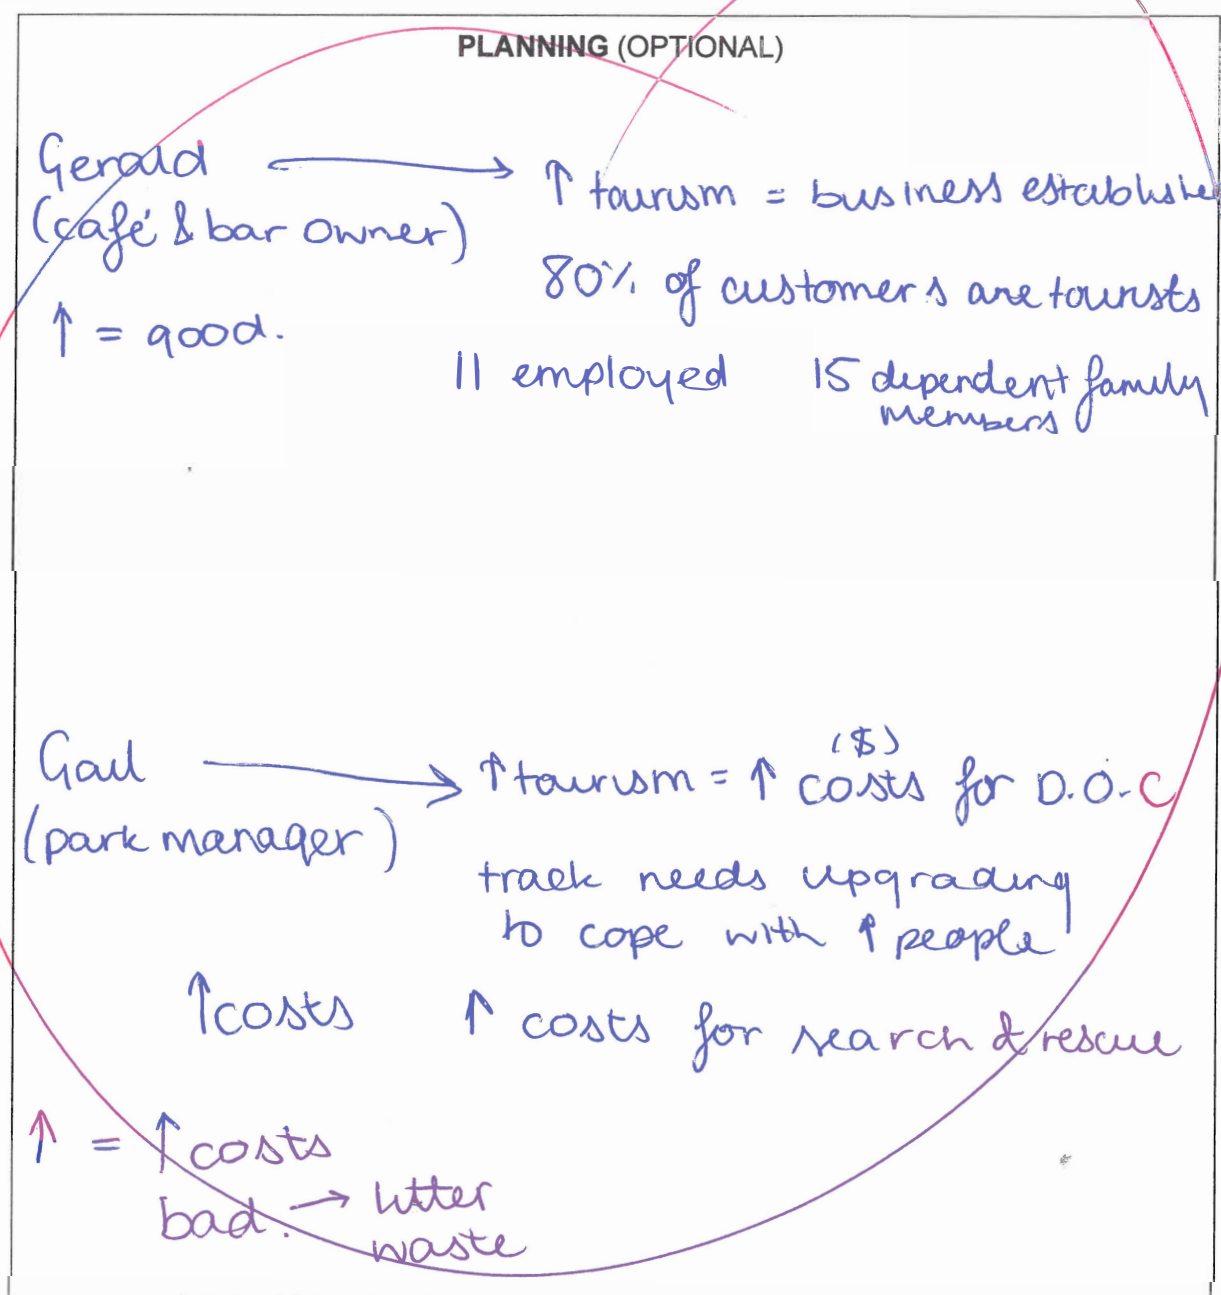 PLANNING (OPTIONAL)
Gerald → ↑ tourism = business establishe
(café & bar owner)
80% of customers are tourists
↑ = good.
11 employed 15 dependent family
members
Gail → ↑ tourism = ↑ costs for D.O.C
($)
(park manager)
track needs upgrading
to cope with ↑ people
↑ costs ↑ costs for search & rescue
↑ = ↑ costs
bad. → litter
waste